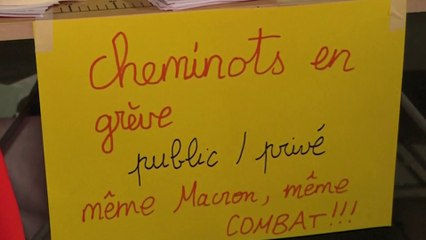 cheminots en
grève
public / privé
même Macron, même
COMBAT!!!